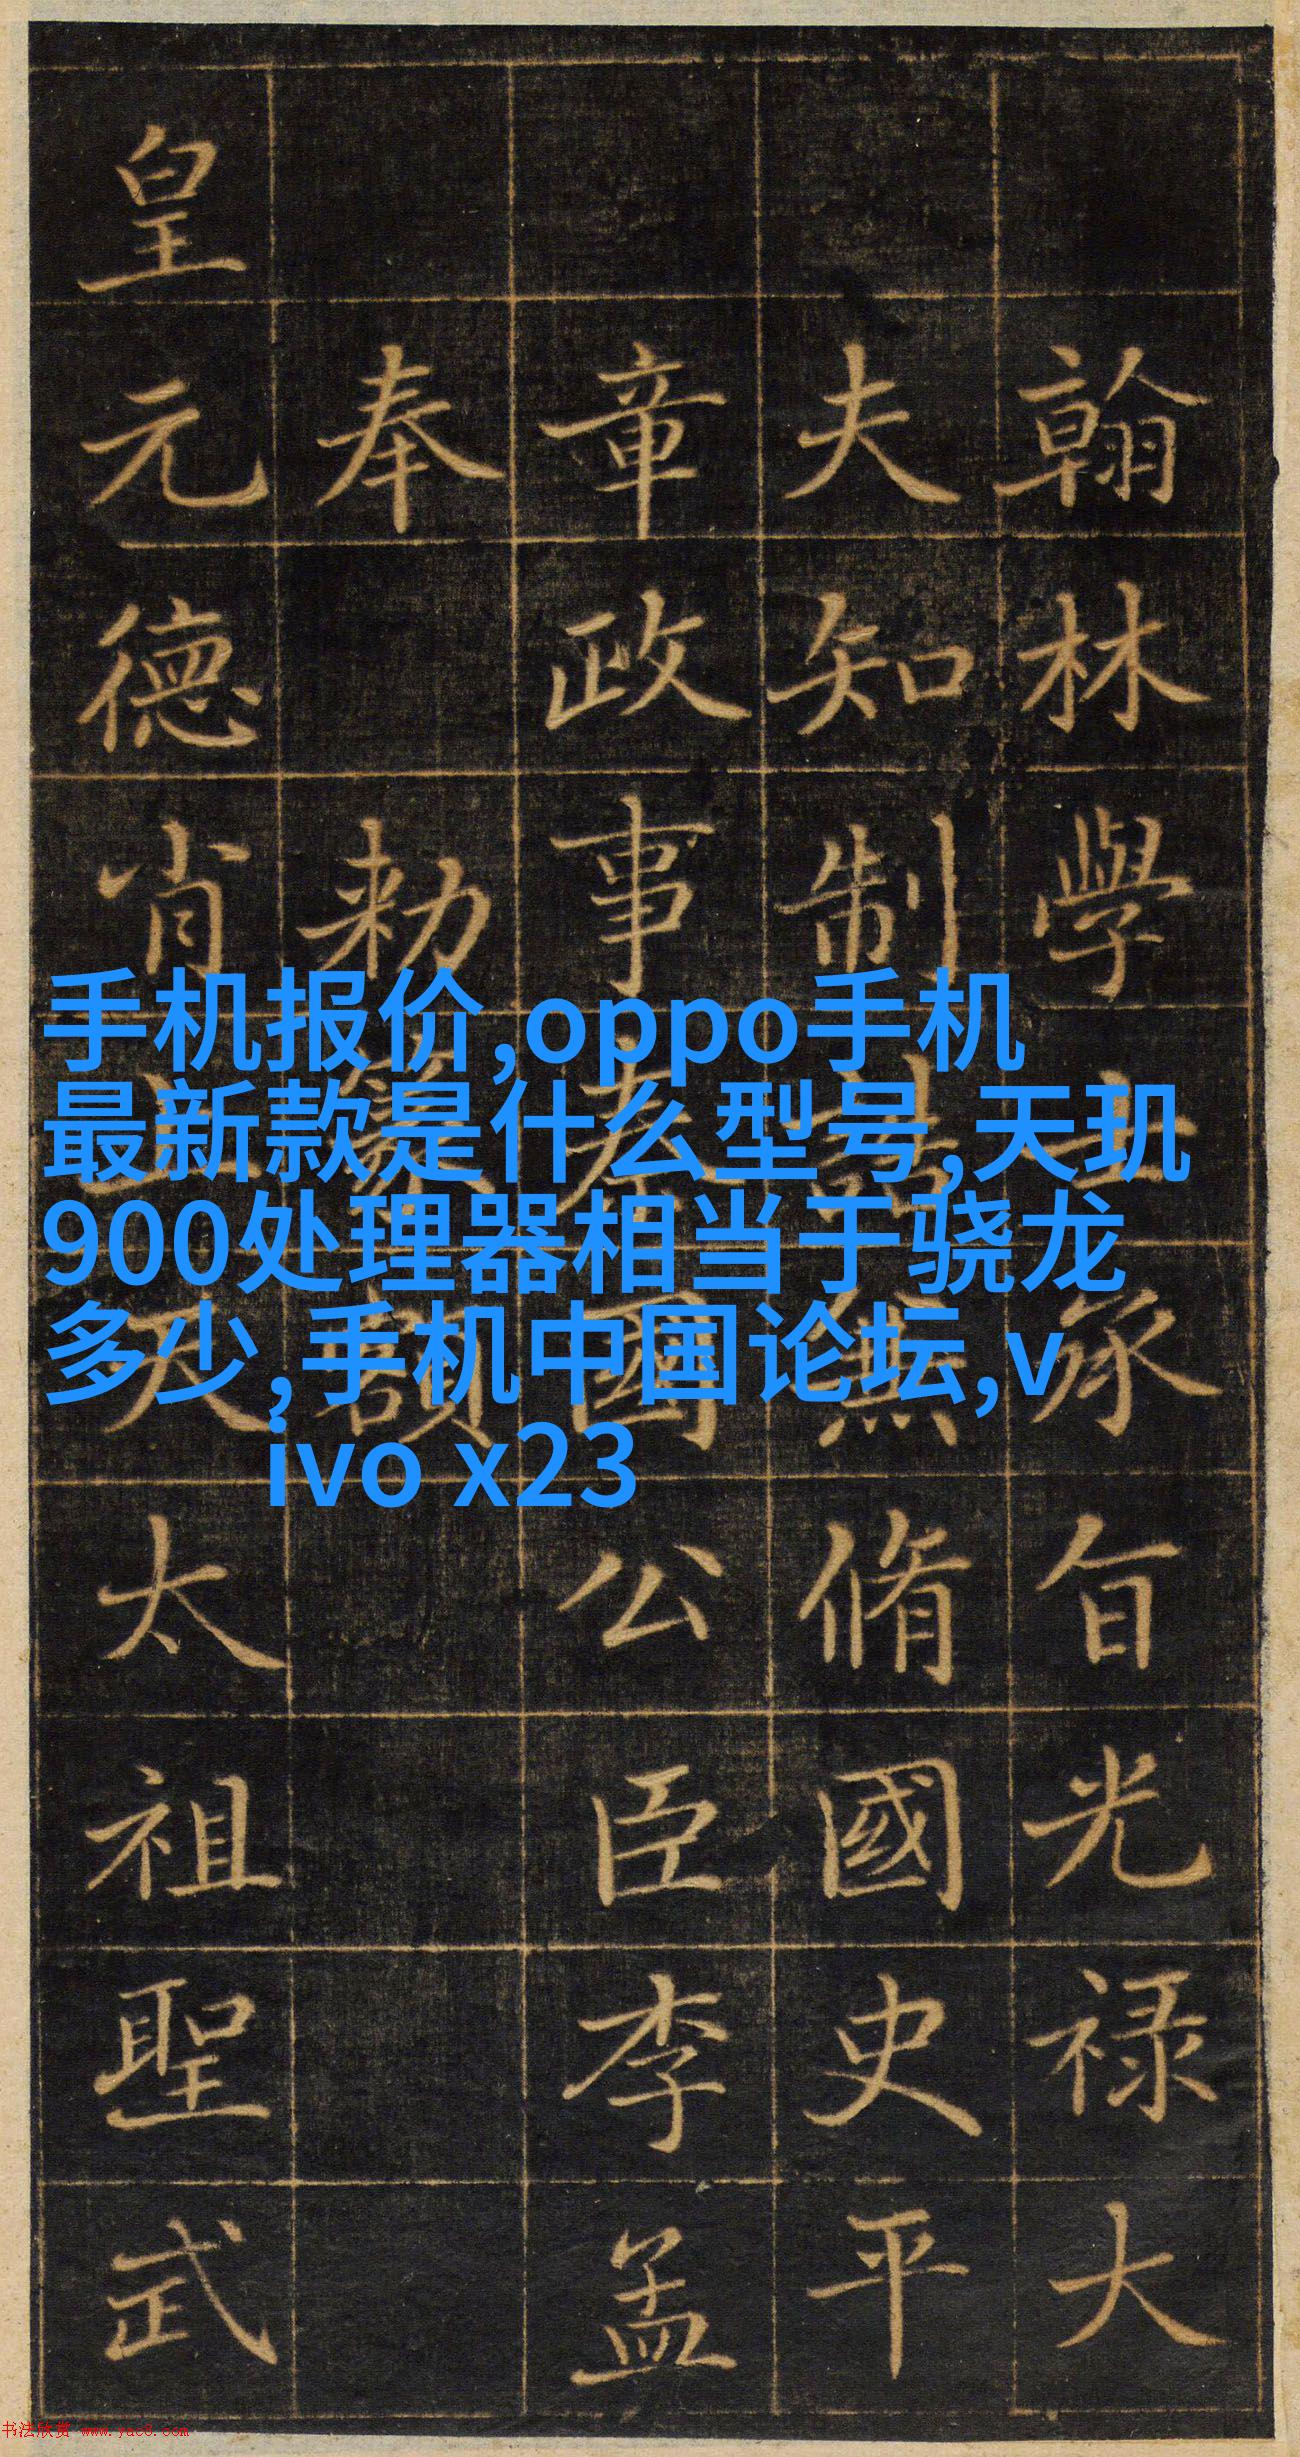 翰林學士承旨光禄大
夫知制誥兼脩國史平
章政事秦國公臣李孟
奉
勅篆額
皇元德肖上天太祖聖武
手机报价,oppo手机
最新款是什么型号,天玑
900处理器相当于骁龙
多少,手机中国论坛,v
ivo x23
书法欣赏 www.yac8.com